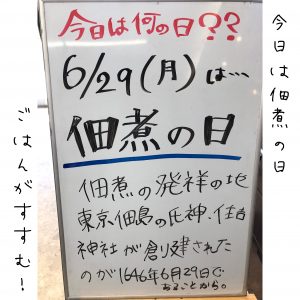 今日は何の日??
6/29(月)は…
佃煮の日
佃煮の発祥の地
東京・佃島の氏神、住吉
神社が創建された
のが1646年6月29日で
あることから。
今日は佃煮の日
ごはんがすすむ!